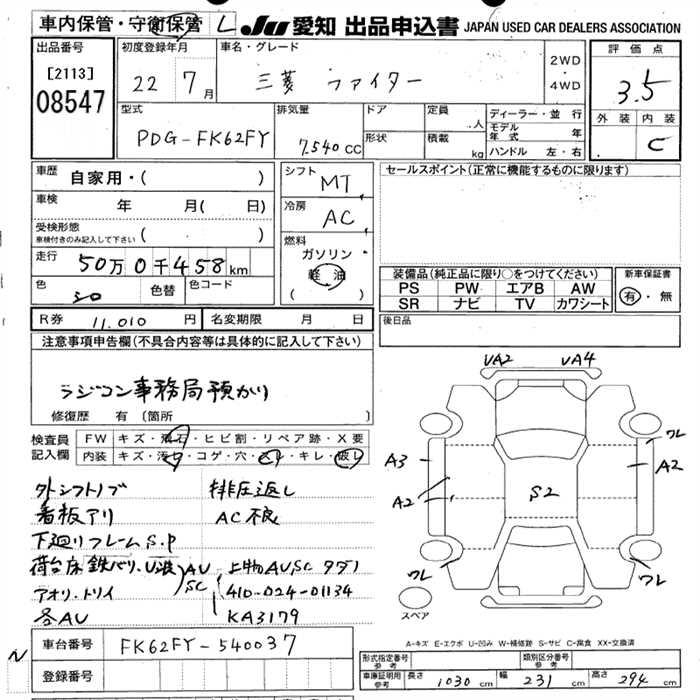 車内保管・守衛保管 L JU 愛知 出品申込書 JAPAN USED CAR DEALERS ASSOCIATION
出品番号
[2113]
08547
初度登録年月
22 7月
車名・グレード
三菱 ファイター
2WD
・
4WD
評価点
3.5
外装 内装
C
型式
PDG-FK62FY
排気量
7.540 CC
ドア
形状
定員
人
積載
kg
ディーラー・並行
モデル年式 年
ハンドル 左・右
車歴
自家用・( )
車検
年 月( 日)
受検形態
車検付きのみ記入して下さい ( )
走行
50万0千458km
色
シロ
色替
色コード
シフト
MT
冷房
AC
燃料
ガソリン
軽油
( )
セールスポイント(正常に機能するものに限ります)
装備品(純正品に限り○をつけてください)
PS PW エアB AW
SR ナビ TV カワシート
新車保証書
有・無
R券 11.010 円
名変期限 月 日
後日品
注意事項申告欄(不具合内容等は具体的に記入して下さい)
ラジコン事務局預かり
修復歴 有 [箇所 ]
検査員
記入欄
FW キズ・飛石・ヒビ割・リペア跡・X要
内装 キズ・汚れ・コゲ・穴・スレ・キレ・破レ
外シフトノブ
看板アリ
下廻りフレームS.P
荷台床鉄バリ、U波
アオリ・トリイ
各AU
AU
SC
排圧返し
AC不良
上物AUSC タダノ
410-024-01134
KA3179
VA2 VA4
A3
A2
S2
ワレ
A2
ワレ
ワレ
スペア
A-キズ E-エクボ U-凹み W-補修跡 S-サビ C-腐食 XX-交換済
車台番号 FK62FY-540037
登録番号
N
形式指定番号
参考
類別区分番号
参考
車庫証明用
参考
長さ 1030 cm 幅 231 cm 高さ 294 cm